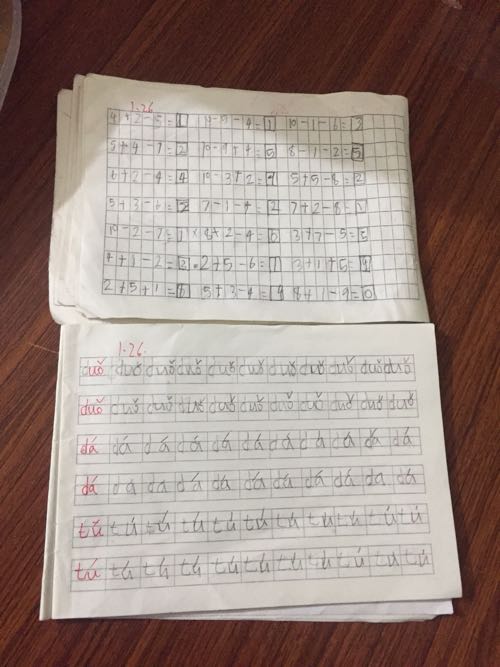 1.26
4+2-5=1 10-5-4=1 10-1-6=3
5+4-7=2 8-1-2=5
6+2-4=4 10-3+2=9 5+5-8=2
5+3-6=2 7-1-4=2 7+2-8=1
10-2-7=1 8+2-4=6 3+7-5=5
4+1-2=3 2+5-6=1 3+1+5=9
2+5+1=8 5+3-4=4 8+1-9=0
1.26.
duǒ duǒ duǒ duǒ duǒ duǒ duǒ duǒ duǒ duǒ duǒ
duǒ duǒ duǒ duǒ duǒ duǒ duǒ duǒ duǒ duǒ duǒ
dá dá dá dá dá dá dá dá dá dá dá
dá dá dá dá dá dá dá dá dá dá dá
tú tú tú tú tú tú tú tú tú tú tú
tú tú tú tú tú tú tú tú tú tú tú